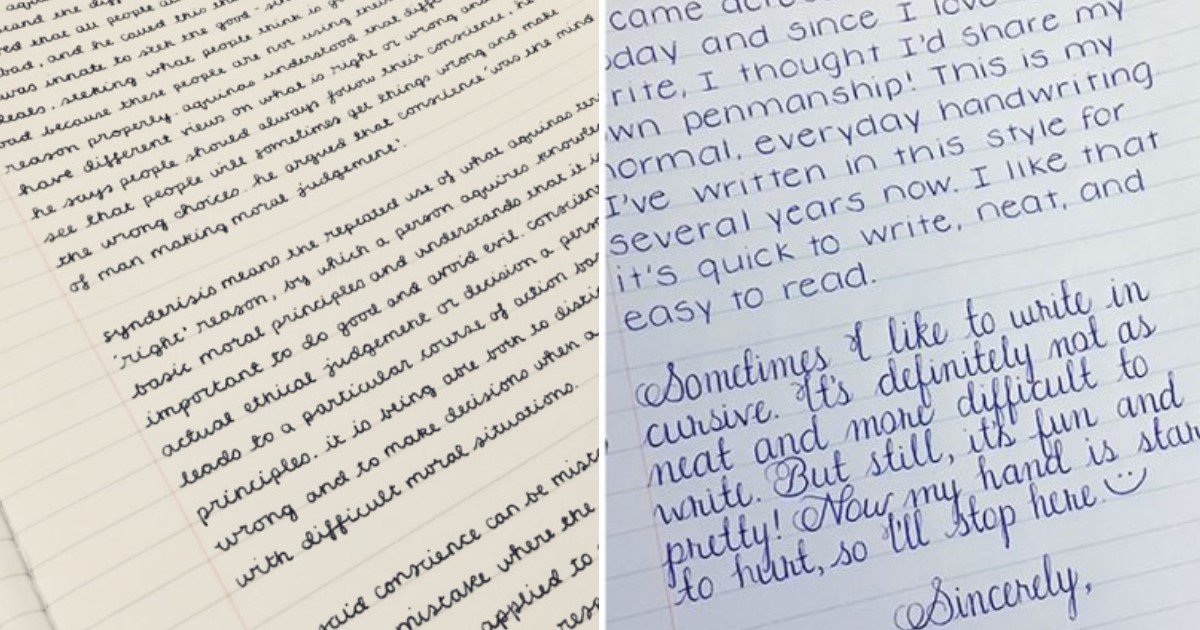 and the diff
ed that all people a
bad, and he called this th
was innate to seek the good - si
deals, seeking what people think is g
bad because these people are not using their
reason properly. aquinas understood that diff
have different views on what is right or wrong an
he says people should always follow their conscience, he
see that people will sometimes get things wrong and make
the wrong choices. he argued that conscience 'was the mind
of man making moral judgement'.
synderisis means the repeated use of what aquinas ter
'right' reason, by which a person aquires knowle
basic moral principles and understands that it is
important to do good and avoid evil. conscien
actual ethical judgement or decision a pers
leads to a particular course of action ba
principles. it is being are both to disti
wrong and to make decisions when a
with difficult moral situations.
said conscience can be mist
mistake where the
applied to
resp
came acr
day and since I lov
rite, I thought I'd share my
wn penmanship! This is my
normal, everyday handwriting
I've written in this style for
several years now. I like that
it's quick to write, neat, and
easy to read.
Sometimes I like to write in
cursive. It's definitely not as
neat and more difficult to
write. But still, it's fun and
pretty! Now my hand is star
to hurt, so I'll stop here.
Sincerely,